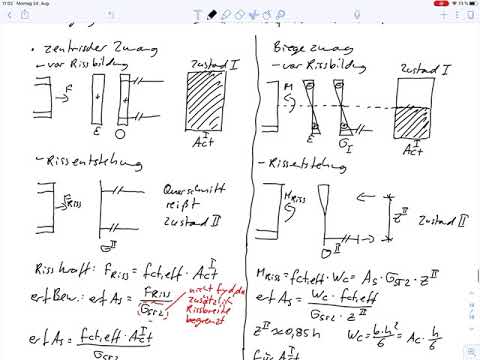 11:02 Montag 24. Aug.
• zentrischer Zwang
- vor Rissbildung
F
ε
σ
Zustand I
Act^I
- Rissentstehung
F_Riss
σ^II
Querschnitt
reißt
Zustand II
Risskraft: F_Riss = fct,eff · Act^I
erf Bew.: erf As = F_Riss / σsr2
nicht fyd, da
zusätzlich
Rissbreite
begrenzt
erf As = fct,eff · Act^I / σsr2
Biegezwang
- vor Rissbildung
M
ε
σ_I
Zustand I
Act^I
- Rissentstehung
M_Riss
σ^II
z^II
Zustand II
M_Riss = fct,eff · Wc = As · σsr2 · z^II
erf As = Wc · fct,eff / σsr2 · z^II
z^II ≈ 0,85h
Wc = b·h² / 6 = Ac · h / 6
für Act^I